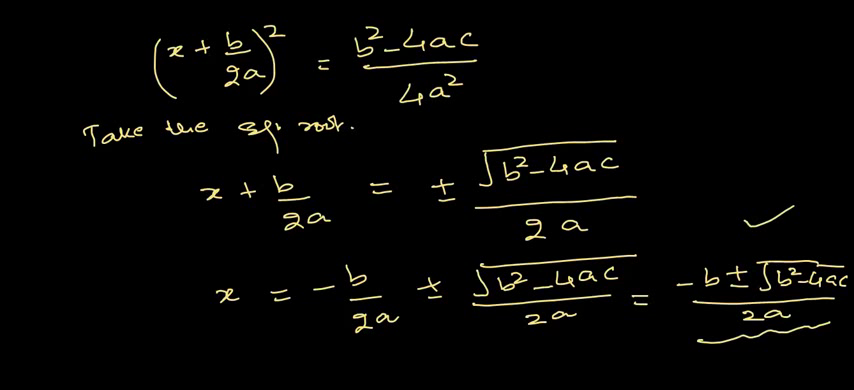 (x + b/2a)² = b² - 4ac / 4a²
Take the sq. root.
x + b/2a = ± √b² - 4ac / 2a
x = - b/2a ± √b² - 4ac / 2a = -b ± √b² - 4ac / 2a